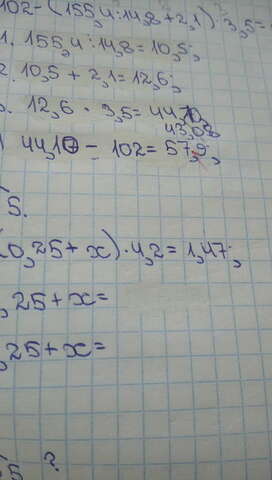 102-(155,4:14,8+2,1)·3,5=
1. 155,4:14,8=10,5;
2. 10,5+2,1=12,6;
3. 12,6·3,5=44,10;
43,08
44,10-102=57,9;
5.
(0,25+x)·4,2=1,47;
,25+x=
,25+x=
?